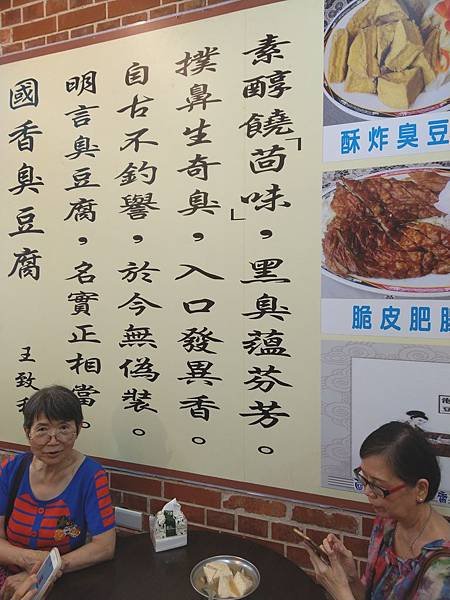 素醇饒「茴味」，黑臭蘊芬芳。
撲鼻生奇臭，入口發異香。
自古不釣譽，於今無偽裝。
明言臭豆腐，名實正相當。
國香臭豆腐
王致
酥炸臭豆
脆皮肥腸